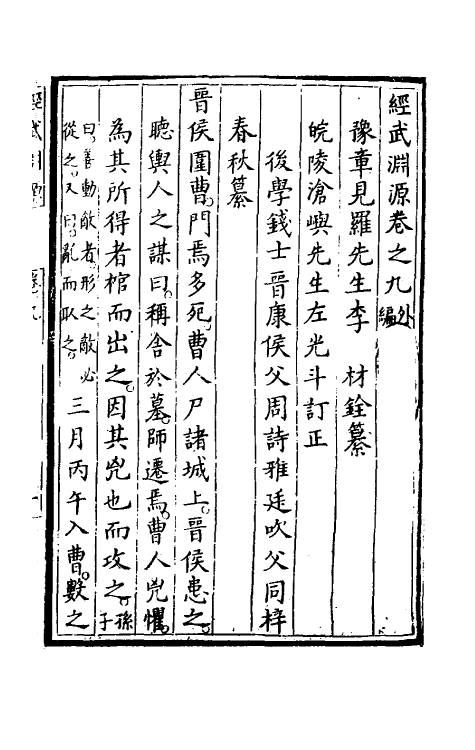 經武淵源卷之九外編
豫章見羅先生李 材銓纂
皖陵滄嶼先生左光斗訂正
後學錢士晉康侯父周詩雅廷吹父同梓
春秋纂
晉侯圍曹門焉多死曹人尸諸城上晉侯患之
聽輿人之謀曰稱舍於墓師遷焉曹人兇懼
為其所得者棺而出之因其兇也而攻之孫子
曰善動敵者形之敵必
從之又曰亂而取之
三月丙午入曹數之